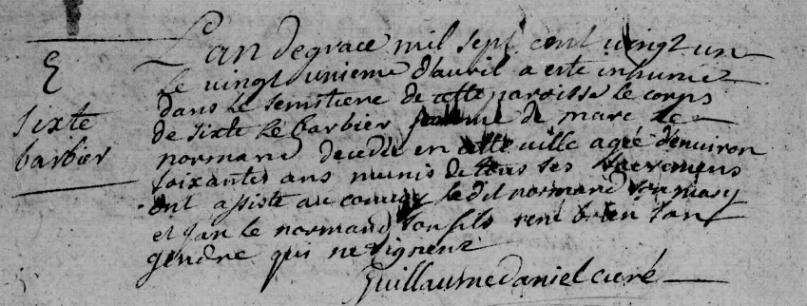 E
Sixte
barbier
L'an de grace mil sept cent vingt un
le vingt unieme d'auril a esté inhumé
dans le semitiere de cette paroisse le corps
de sixte le barbier femme de marc le
normand decedée en cette ville agée d'enuiron
soixantes ans munis de tous ses sacremens
ont assisté au conuoy le dit normand son mary
et jan le normand son fils rené brien son
gendre qui ne signent
Guillaume daniel curé